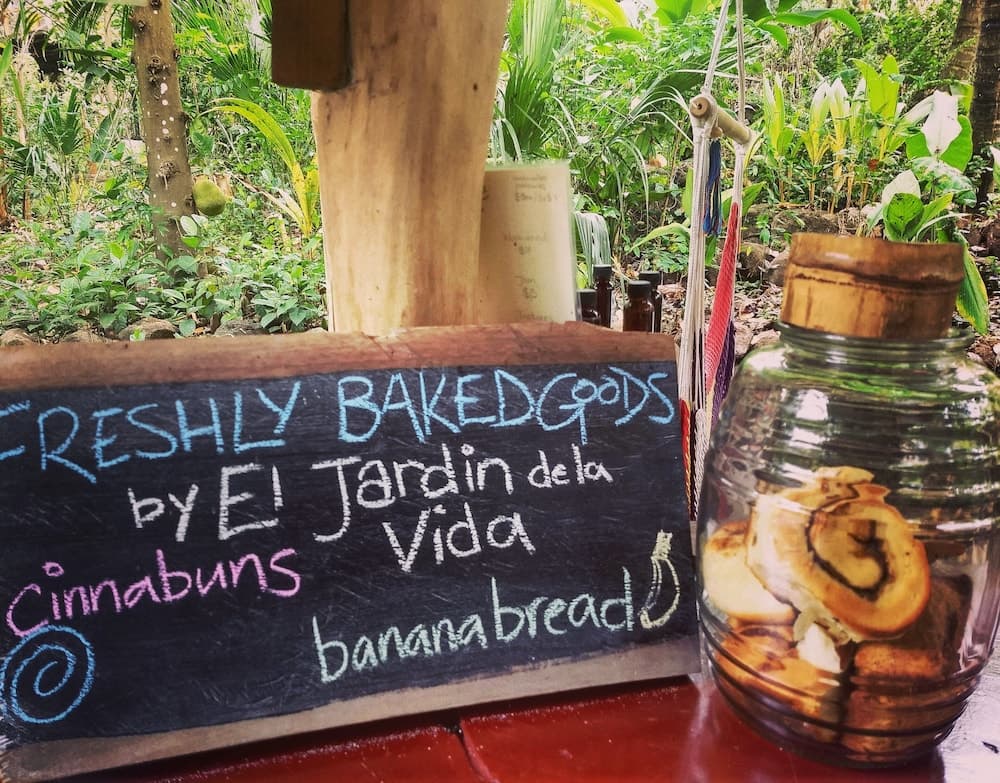 FRESHLY BAKED GOODS
by El Jardin de la
Vida
Cinnabuns
banana bread